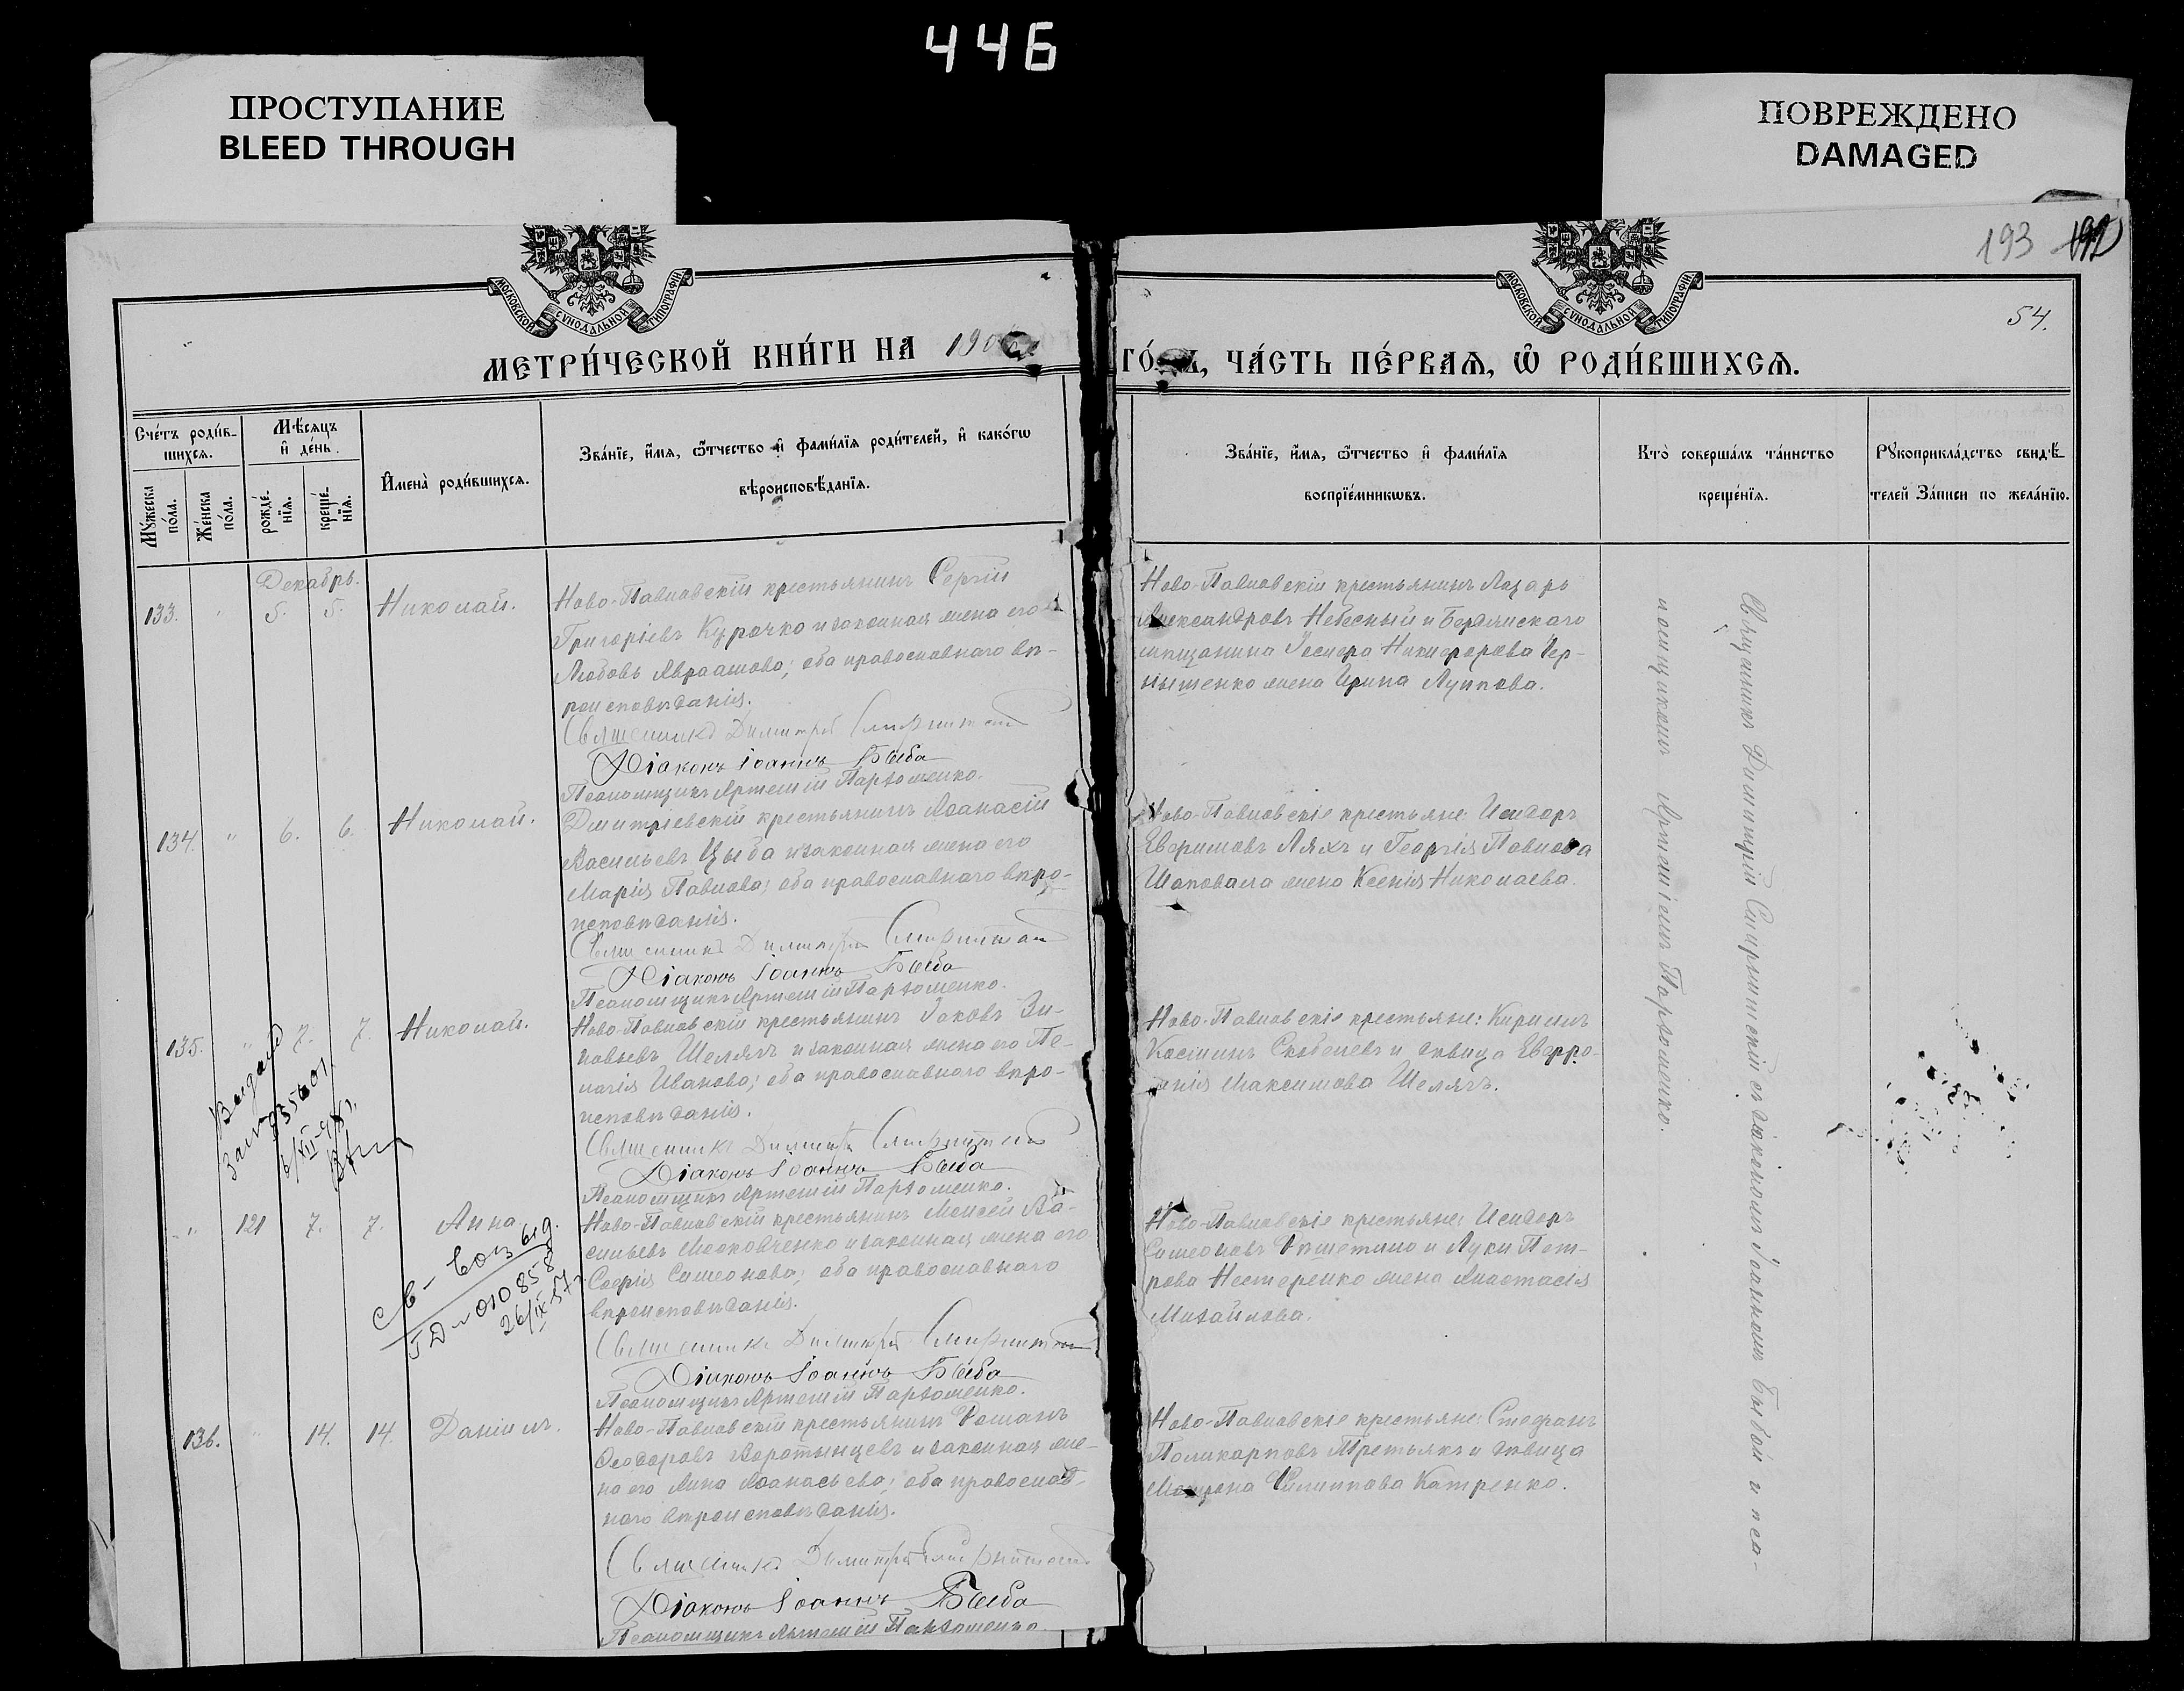 446
ПРОСТУПАНИЕ
BLEED THROUGH
ПОВРЕЖДЕНО
DAMAGED
193
54.
МОСКОВСКОЙ СѴНОДАЛЬНОЙ ТИПОГРАФІИ
МОСКОВСКОЙ СѴНОДАЛЬНОЙ ТИПОГРАФІИ
МЕТРИ́ЧЕСКОЙ КНИ́ГИ НА 190
ЧА́СТЬ ПЕ́РВАѦ, Ѿ РОДИ́ВШИХСѦ.
Сче́тъ роди́в-
шихсѧ.
Мꙋ́жеска по́ла.
Же́нска по́ла.
Мѣ́сѧцъ
и҆ де́нь.
рожде́-
нїѧ.
креще́-
нїѧ.
И҆мена̀ роди́вшихсѧ.
Зва́нїе, и҆́мѧ, ѻ҆́тчество и҆ фами́лїѧ роди́телей, и҆ како́гѡ
вѣроисповѣ́данїѧ.
Зва́нїе, и҆́мѧ, ѻ҆́тчество и҆ фами́лїѧ
воспрїе́мникѡвъ.
Кто̀ соверша́лъ та́инство
креще́нїѧ.
Рꙋкоприкла́дство свидѣ́-
телей за́писи по жела́нїю.
Декабрь.
133. " 5. 5. Николай.
Ново-Павловскій крестьянинъ Сергій
Григоріевъ Курочко и законная жена его
Любовь Авраамова; оба православнаго вѣ-
роисповѣданія.
Священникъ Димитрій
Діаконъ Іоаннъ Быба
Псаломщикъ Артемій Пархоменко.
Ново-Павловскій крестьянинъ Лазарь
Александровъ Небесный и Бердянскаго
мѣщанина Іосифа Никифорова Чер-
нышенко жена Ирина Лупповa.
134. " 6. 6. Николай.
Дмитріевскій крестьянинъ Аѳанасій
Васильевъ Цыба и законная жена его
Марія Павлова; оба православнаго вѣро-
исповѣданія.
Священникъ Димитрій
Діаконъ Іоаннъ Быба
Псаломщикъ Артемій Пархоменко.
Ново-Павловскіе крестьяне: Исидоръ
Евфимовъ Ляхъ и Георгія Павлова
Шаповала жена Ксенія Николаева.
135. " 7. 7. Николай.
Ново-Павловскій крестьянинъ Іаковъ Зи-
новьевъ Шелягъ и законная жена его Пе-
лагія Иванова; оба православнаго вѣро-
исповѣданія.
Священникъ Димитрій
Діаконъ Іоаннъ Быба
Псаломщикъ Артемій Пархоменко.
Ново-Павловскіе крестьяне: Кириллъ
Косминъ Скобелевъ и дѣвица Евфро-
Максимова Шелягъ.
" 121 7. 7. Анна.
Ново-Павловскій крестьянинъ Моисей Ва-
сильевъ Московченко и законная жена его
Софія Симеонова; оба православнаго
вѣроисповѣданія.
Священникъ Димитрій
Діаконъ Іоаннъ Быба
Псаломщикъ Артемій Пархоменко.
26/IX-57
Ново-Павловскіе крестьяне: Исидоръ
Симеоновъ и Луки Пет-
рова Нестеренко жена Анастасія
Михайлова.
136. " 14. 14. Даніилъ.
Ново-Павловскій крестьянинъ Романъ
Ѳеодоровъ Воротынцевъ и законная же-
на его Анна Аѳанасьева; оба православ-
наго вѣроисповѣданія.
Священникъ Димитрій
Діаконъ Іоаннъ Быба
Псаломщикъ Артемій Пархоменко.
Ново-Павловскіе крестьяне: Стефанъ
Поликарповъ Третьякъ и дѣвица
Матрона Филиппова Катренко.
Священникъ Димитрій съ діакономъ Іоанномъ Быбой и пса-
ломщикомъ Артеміемъ Пархоменко.